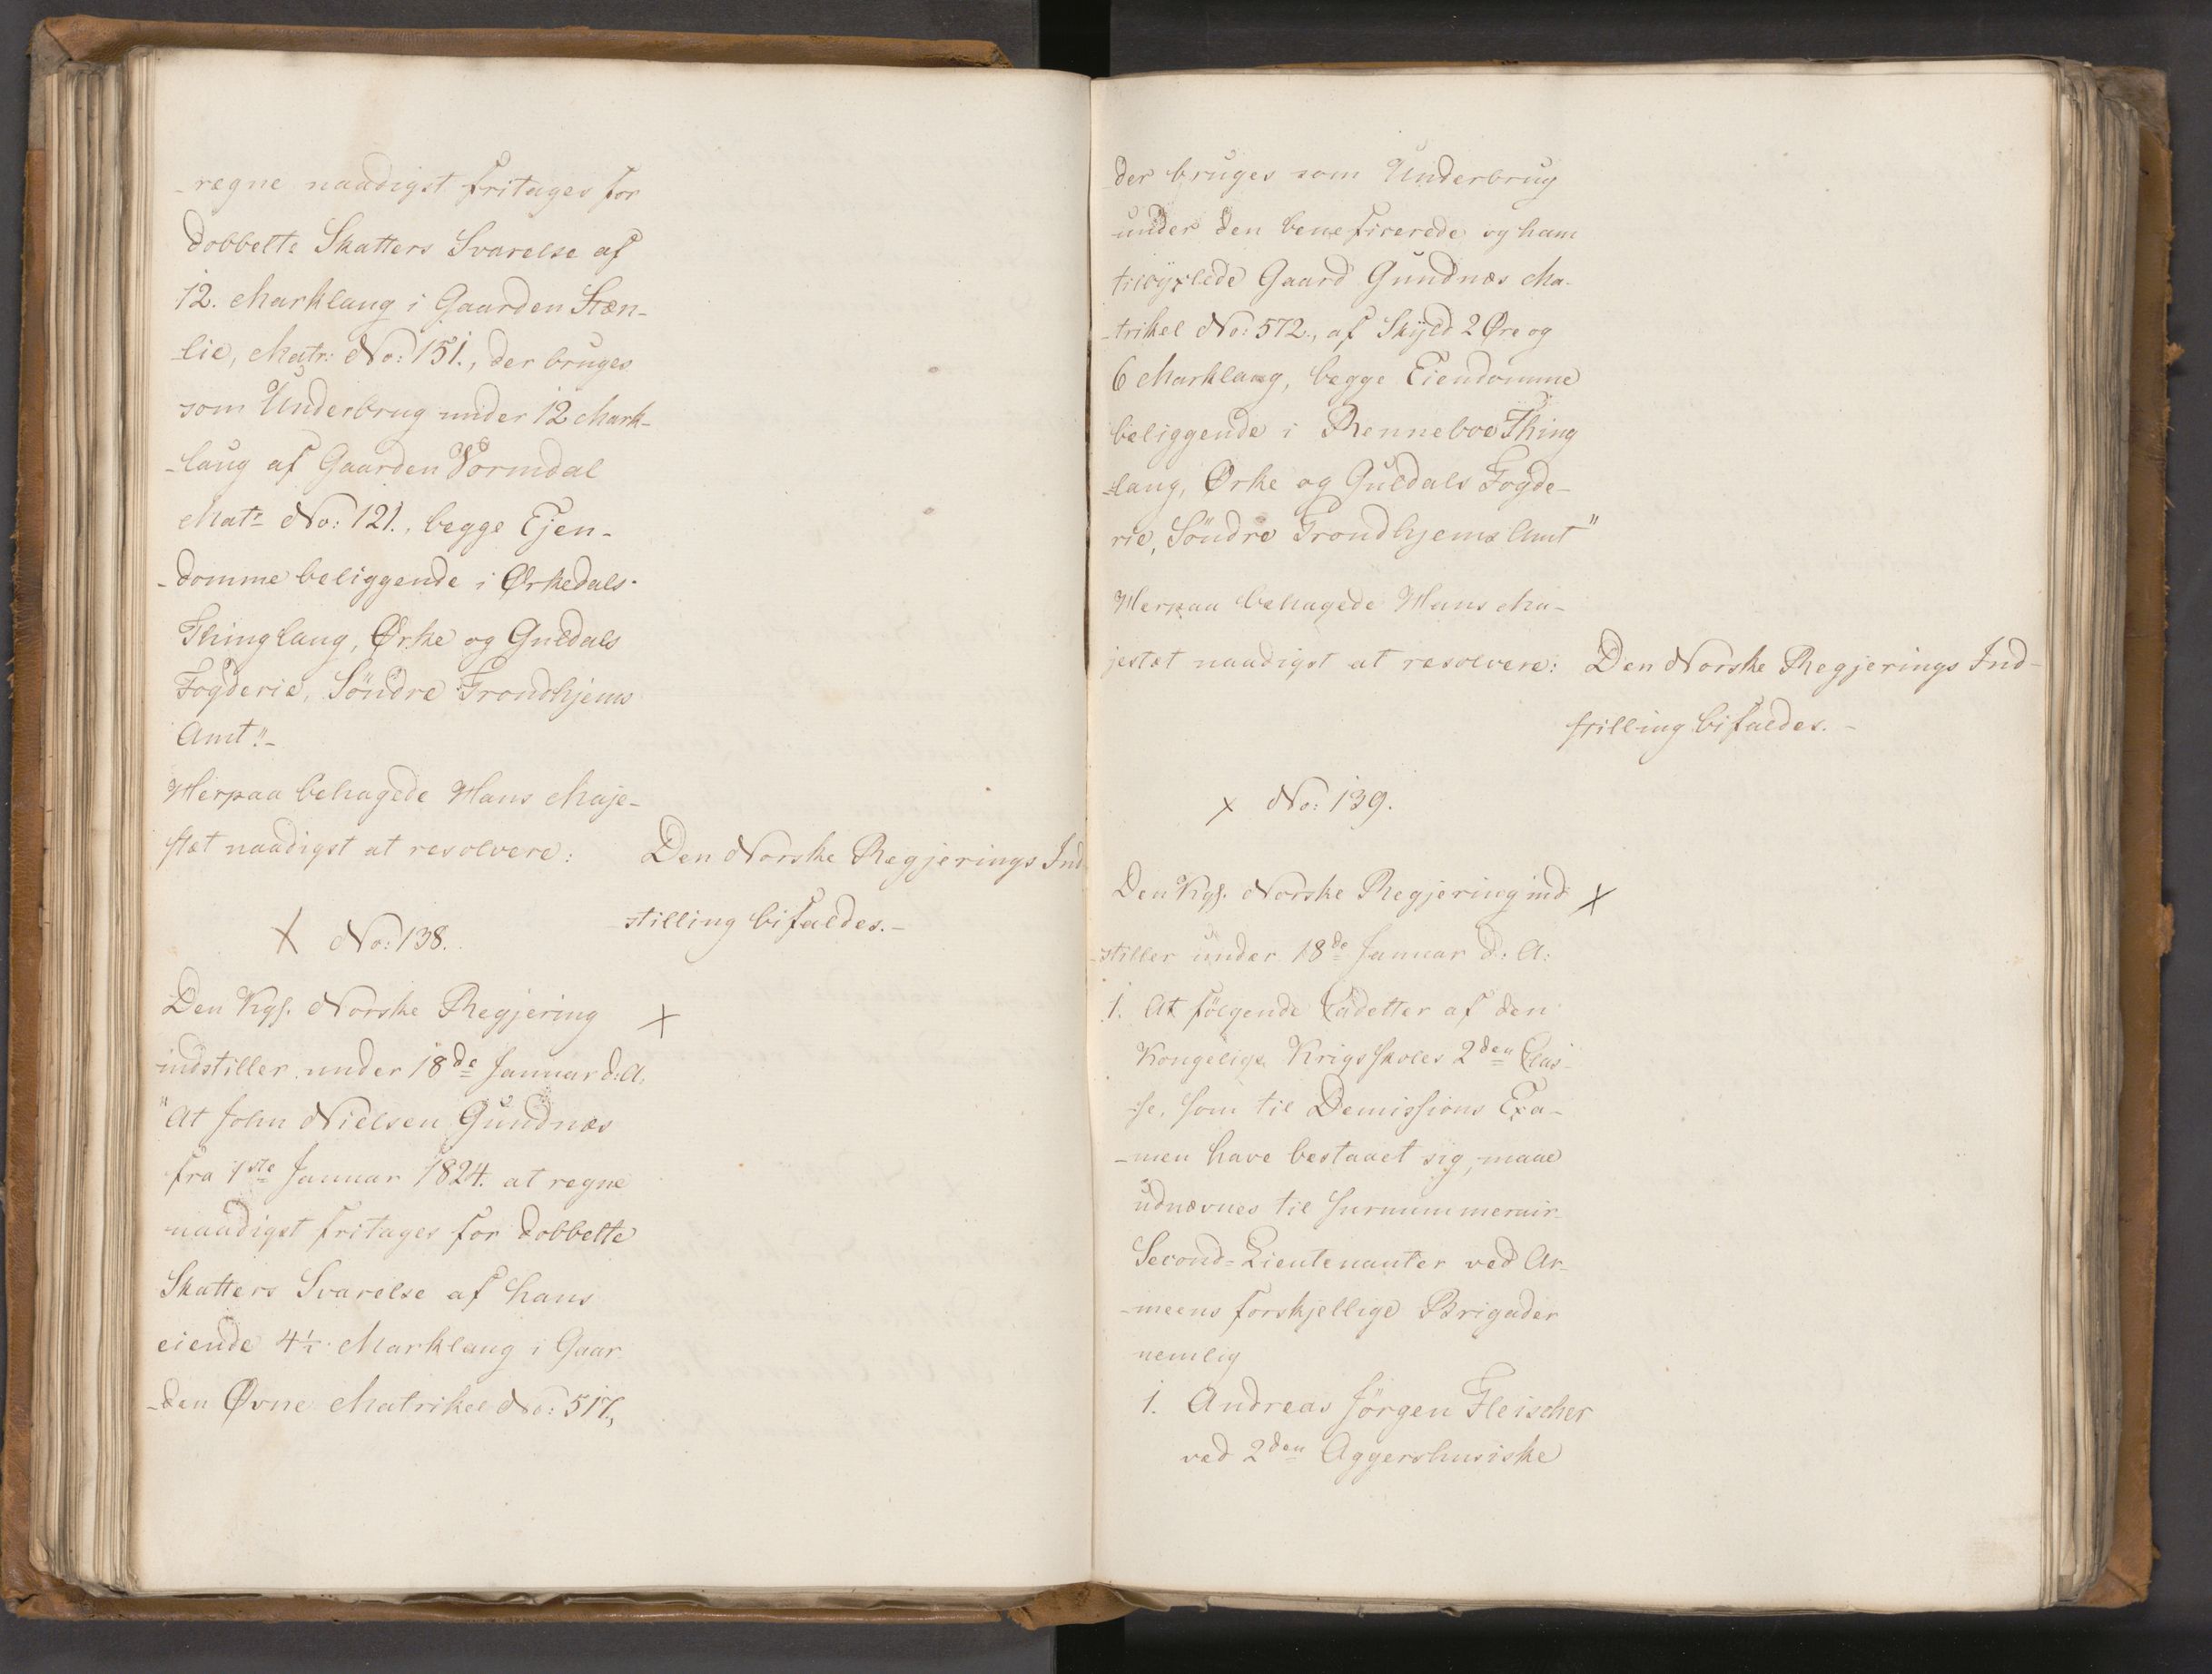 -regne naadigst fritages for
dobbelte Skatters Svarelse af
12. Marklaug i Gaarden Stæn-
-lie, Matr: No: 151., der bruges
som Underbrug under 12 Mark-
-laug af Gaarden Vormdal
Matr No: 121., begge Ejen-
-domme beliggende i Ørkedals
Thinglaug, Ørke og Guldals
Fogderie, Söndre Trondhjems
Amt."-
Herpaa behagede Hans Maje-
stæt naadigst at resolvere:
Den Norske Regjerings Ind-
stilling bifaldes.-
X No: 138.
Den Kgl. Norske Regjering X
indstiller under 18de Januar d:A:
"At John Nielsen Gundnæs
fra 1ste Januar 1824. at regne
naadigst fritages for dobbelte
Skatters Svarelse af hans
eiende 4½ Marklaug i Gaar-
-den Øvne Matrikel No: 517.,
der bruges som Underbrug
under den beneficerede og ham
tilbyxlede Gaard Gundnæs Ma-
-trikel No: 572., af Skyld 2 Øre og
6 Marklaug, begge Eiendomme
beliggende i Renneboe Thing
-laug, Ørke og Guldals Fogde-
rie, Söndre Trondhjems Amt"
Herpaa behagede Hans Ma-
jestæt naadigst at resolvere:
Den Norske Regjerings Ind-
stilling bifaldes.-
x No: 139.
Den Kgl. Norske Regjering ind X
-stiller under 18de Januar d: A:
1. At fölgende Cadetter af den
Kongelige Krigsskoles 2den Clas-
-se, som til Demissions Exa-
-men have bestaaet sig, maae
udnævnes til surnummerair-
Second-Lieutenanter ved Ar-
-meens forskjellige Brigader
nemlig
1. Andreas Jörgen Fleischer
ved 2den Aggershusiske